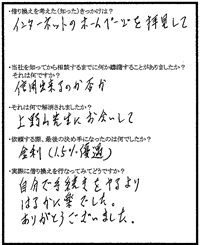 ・借り換えを考えた(知った)きっかけは?
インターネットのホームページを拝見して
・当社を知ってから相談するまでに何か躊躇することがありましたか?
それは何ですか?
信用出来るのか否か
・それは何で解消されましたか?
上野山先生にお会いして
・依頼する際、最後の決め手になったのは何でしたか?
金利(1.5%優遇)
・実際に借り換えを行なってみてどうですか?
自分で手続きをやるより
はるかに楽でした。
ありがとうございました。